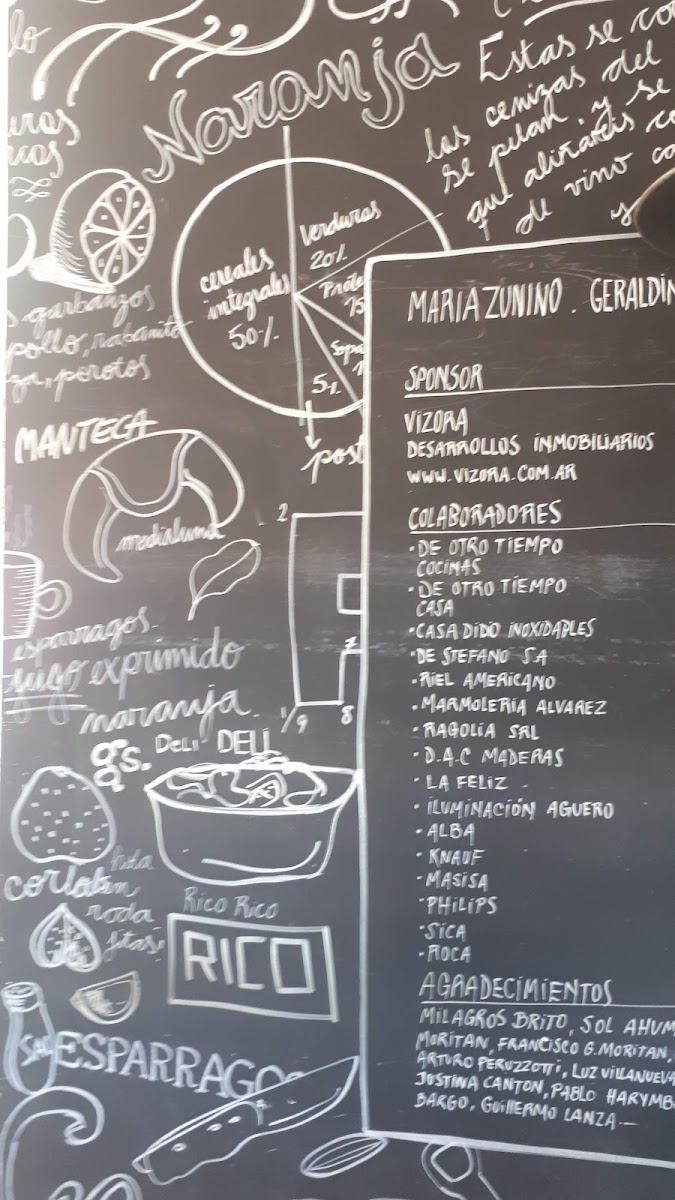 Naranja
Estas se
las cenizas del
se pelan. y se
que aliñareis
de vino
y
verduras
20%
cereales
integrales
50%
5%
garbanzos
pollo, rabanito
porotos
MANTECA
medialuna
2
7
1/9
8
esparragos.
jugo exprimido
naranja.
DELI DELI
hola
roda
jitas
Rico Rico
RICO
SAL
ESPARRAGOS
MARIA ZUNINO . GERALDIN
SPONSOR
VIZORA
DESARROLLOS INMOBILIARIOS
WWW.VIZORA.COM.AR
COLABORADORES
·DE OTRO TIEMPO
COCINAS
·DE OTRO TIEMPO
CASA
·CASA DIDO INOXIDABLES
·DE STEFANO S.A
·RIEL AMERICANO
·MARMOLERIA ALVAREZ
·RAGOLIA SRL
·D.A.C MADERAS
·LA FELIZ
·ILUMINACIÓN AGUERO
·ALBA
·KNAUF
·MASISA
·PHILIPS
·SICA
·ROCA
AGRADECIMIENTOS
MILAGROS BRITO, SOL AHUM
MORITAN, FRANCISCO G. MORITAN,
ARTURO PERUZZOTTI, LUZ VILLANUEVA
JUSTINA CANTON, PABLO HARYMB
BARGO, GUILLERMO LANZA.—